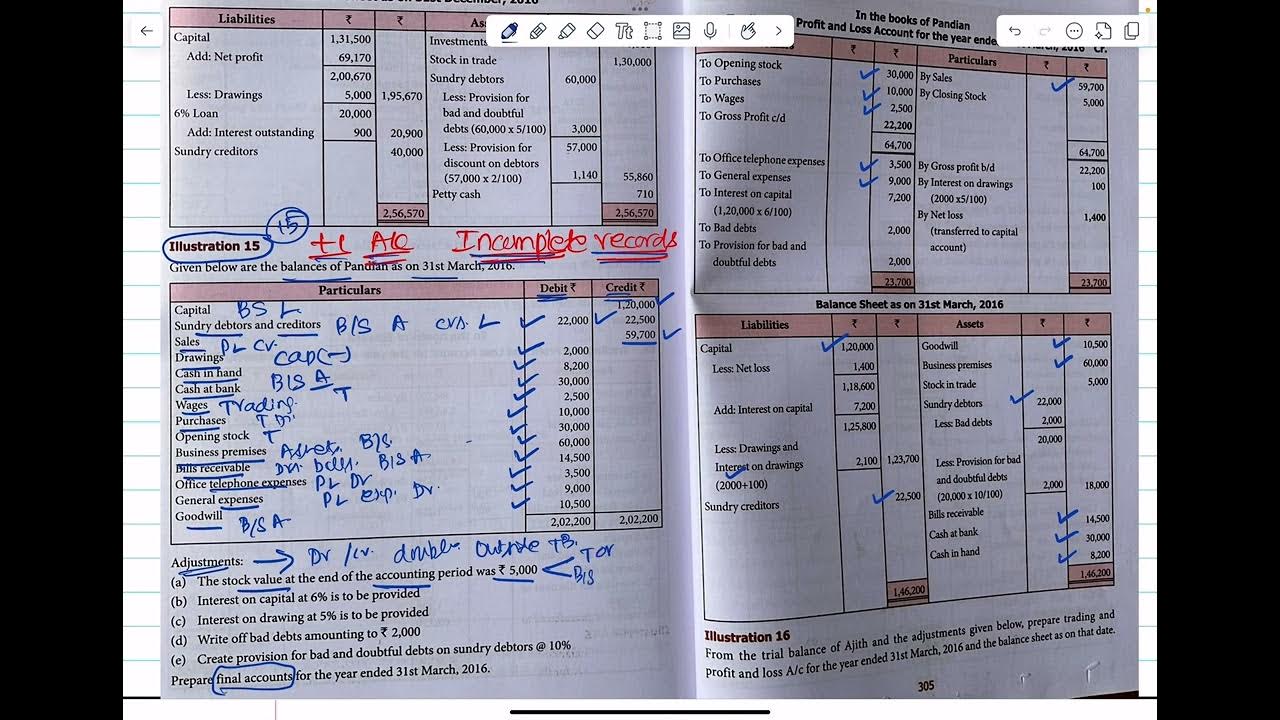 as on 31st December, 2016
Liabilities ₹ ₹
Capital 1,31,500 Investments
Add: Net profit 69,170 Stock in trade 1,30,000
2,00,670 Sundry debtors 60,000
Less: Drawings 5,000 1,95,670 Less: Provision for
6% Loan 20,000 bad and doubtful
Add: Interest outstanding 900 20,900 debts (60,000 x 5/100) 3,000
Sundry creditors 40,000 57,000
Less: Provision for
discount on debtors
(57,000 x 2/100) 1,140 55,860
Petty cash 710
2,56,570 2,56,570
15
Illustration 15 A/c Incomplete records
Given below are the balances of Pandian as on 31st March, 2016.
Particulars Debit ₹ Credit ₹
Capital BS L 1,20,000
Sundry debtors and creditors B/S A crs. L 22,000 22,500
Sales PL Cr. 59,700
Drawings Cap(-) 2,000
Cash in hand 8,200
Cash at bank B/S A 30,000
Wages Trading T 2,500
Purchases T Dr 10,000
Opening stock T 30,000
Business premises Asset. B/S 60,000
Bills receivable B/S A 14,500
Office telephone expenses PL Dr 3,500
General expenses PL exp. Dr. 9,000
Goodwill B/S A 10,500
2,02,200 2,02,200
Adjustments: → Dr /Cr. double outside TB.
(a) The stock value at the end of the accounting period was ₹ 5,000 T Cr
B/S
(b) Interest on capital at 6% is to be provided
(c) Interest on drawing at 5% is to be provided
(d) Write off bad debts amounting to ₹ 2,000
(e) Create provision for bad and doubtful debts on sundry debtors @ 10%
Prepare final accounts for the year ended 31st March, 2016.
In the books of Pandian
Profit and Loss Account for the year ended March, 2016 Cr.
₹ ₹ Particulars ₹ ₹
To Opening stock 30,000 By Sales 59,700
To Purchases 10,000 By Closing Stock 5,000
To Wages 2,500
To Gross Profit c/d 22,200
64,700 64,700
To Office telephone expenses 3,500 By Gross profit b/d 22,200
To General expenses 9,000 By Interest on drawings 100
To Interest on capital 7,200 (2000 x5/100)
(1,20,000 x 6/100) By Net loss 1,400
To Bad debts 2,000 (transferred to capital
To Provision for bad and account)
doubtful debts 2,000
23,700 23,700
Balance Sheet as on 31st March, 2016
Liabilities ₹ ₹ Assets ₹ ₹
Capital 1,20,000 Goodwill 10,500
Less: Net loss 1,400 Business premises 60,000
1,18,600 Stock in trade 5,000
Add: Interest on capital 7,200 Sundry debtors 22,000
1,25,800 Less: Bad debts 2,000
20,000
Less: Drawings and
Interest on drawings 2,100 1,23,700 Less: Provision for bad
(2000+100) and doubtful debts
Sundry creditors 22,500 (20,000 x 10/100) 2,000 18,000
Bills receivable 14,500
Cash at bank 30,000
Cash in hand 8,200
1,46,200 1,46,200
Illustration 16
From the trial balance of Ajith and the adjustments given below, prepare trading and
profit and loss A/c for the year ended 31st March, 2016 and the balance sheet as on that date.
305